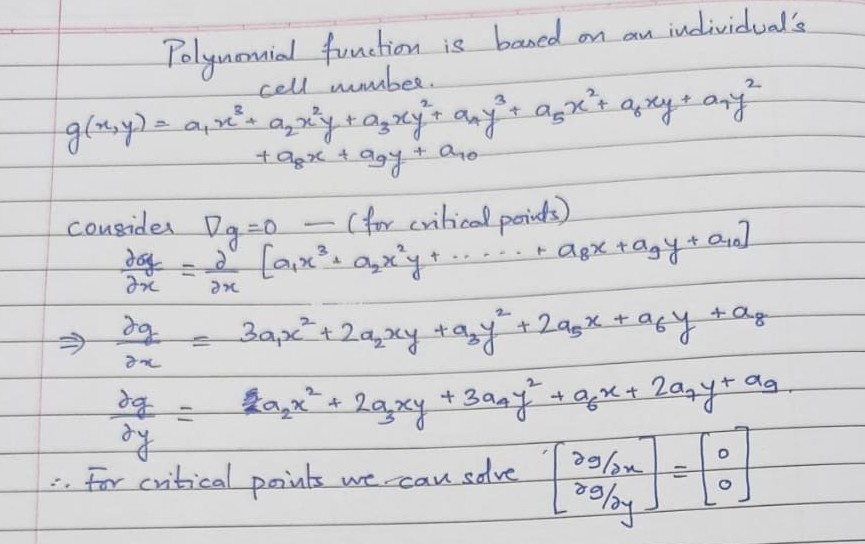 Polynomial function is based on an individual's
cell number.
g(x,y) = a₁x³ + a₂x²y + a₃xy² + a₄y³ + a₅x² + a₆xy + a₇y²
+ a₈x + a₉y + a₁₀
consider ∇g = 0 — (for critical points)
∂g/∂x = ∂/∂x [a₁x³ + a₂x²y + ...... + a₈x + a₉y + a₁₀]
⇒ ∂g/∂x = 3a₁x² + 2a₂xy + a₃y² + 2a₅x + a₆y + a₈
∂g/∂y = a₂x² + 2a₃xy + 3a₄y² + a₆x + 2a₇y + a₉.
∴ For critical points we can solve [∂g/∂x ∂g/∂y] = [0 0]